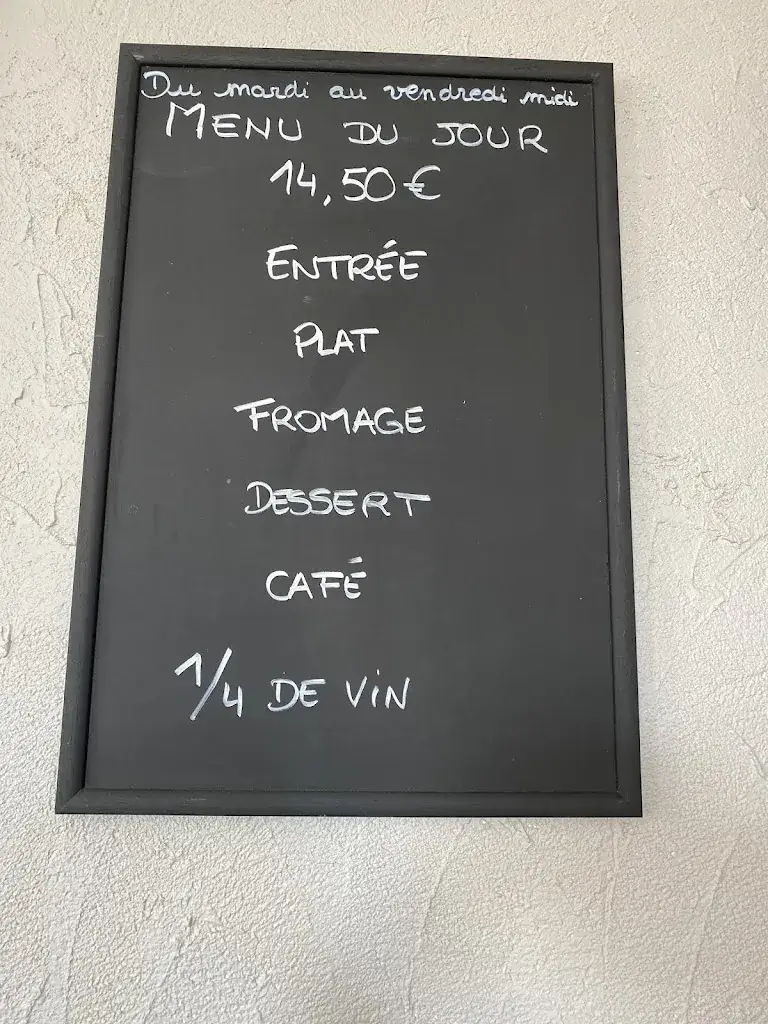 Du mardi au vendredi midi
MENU DU JOUR
14,50€
ENTRÉE
PLAT
FROMAGE
DESSERT
CAFÉ
1/4 DE VIN